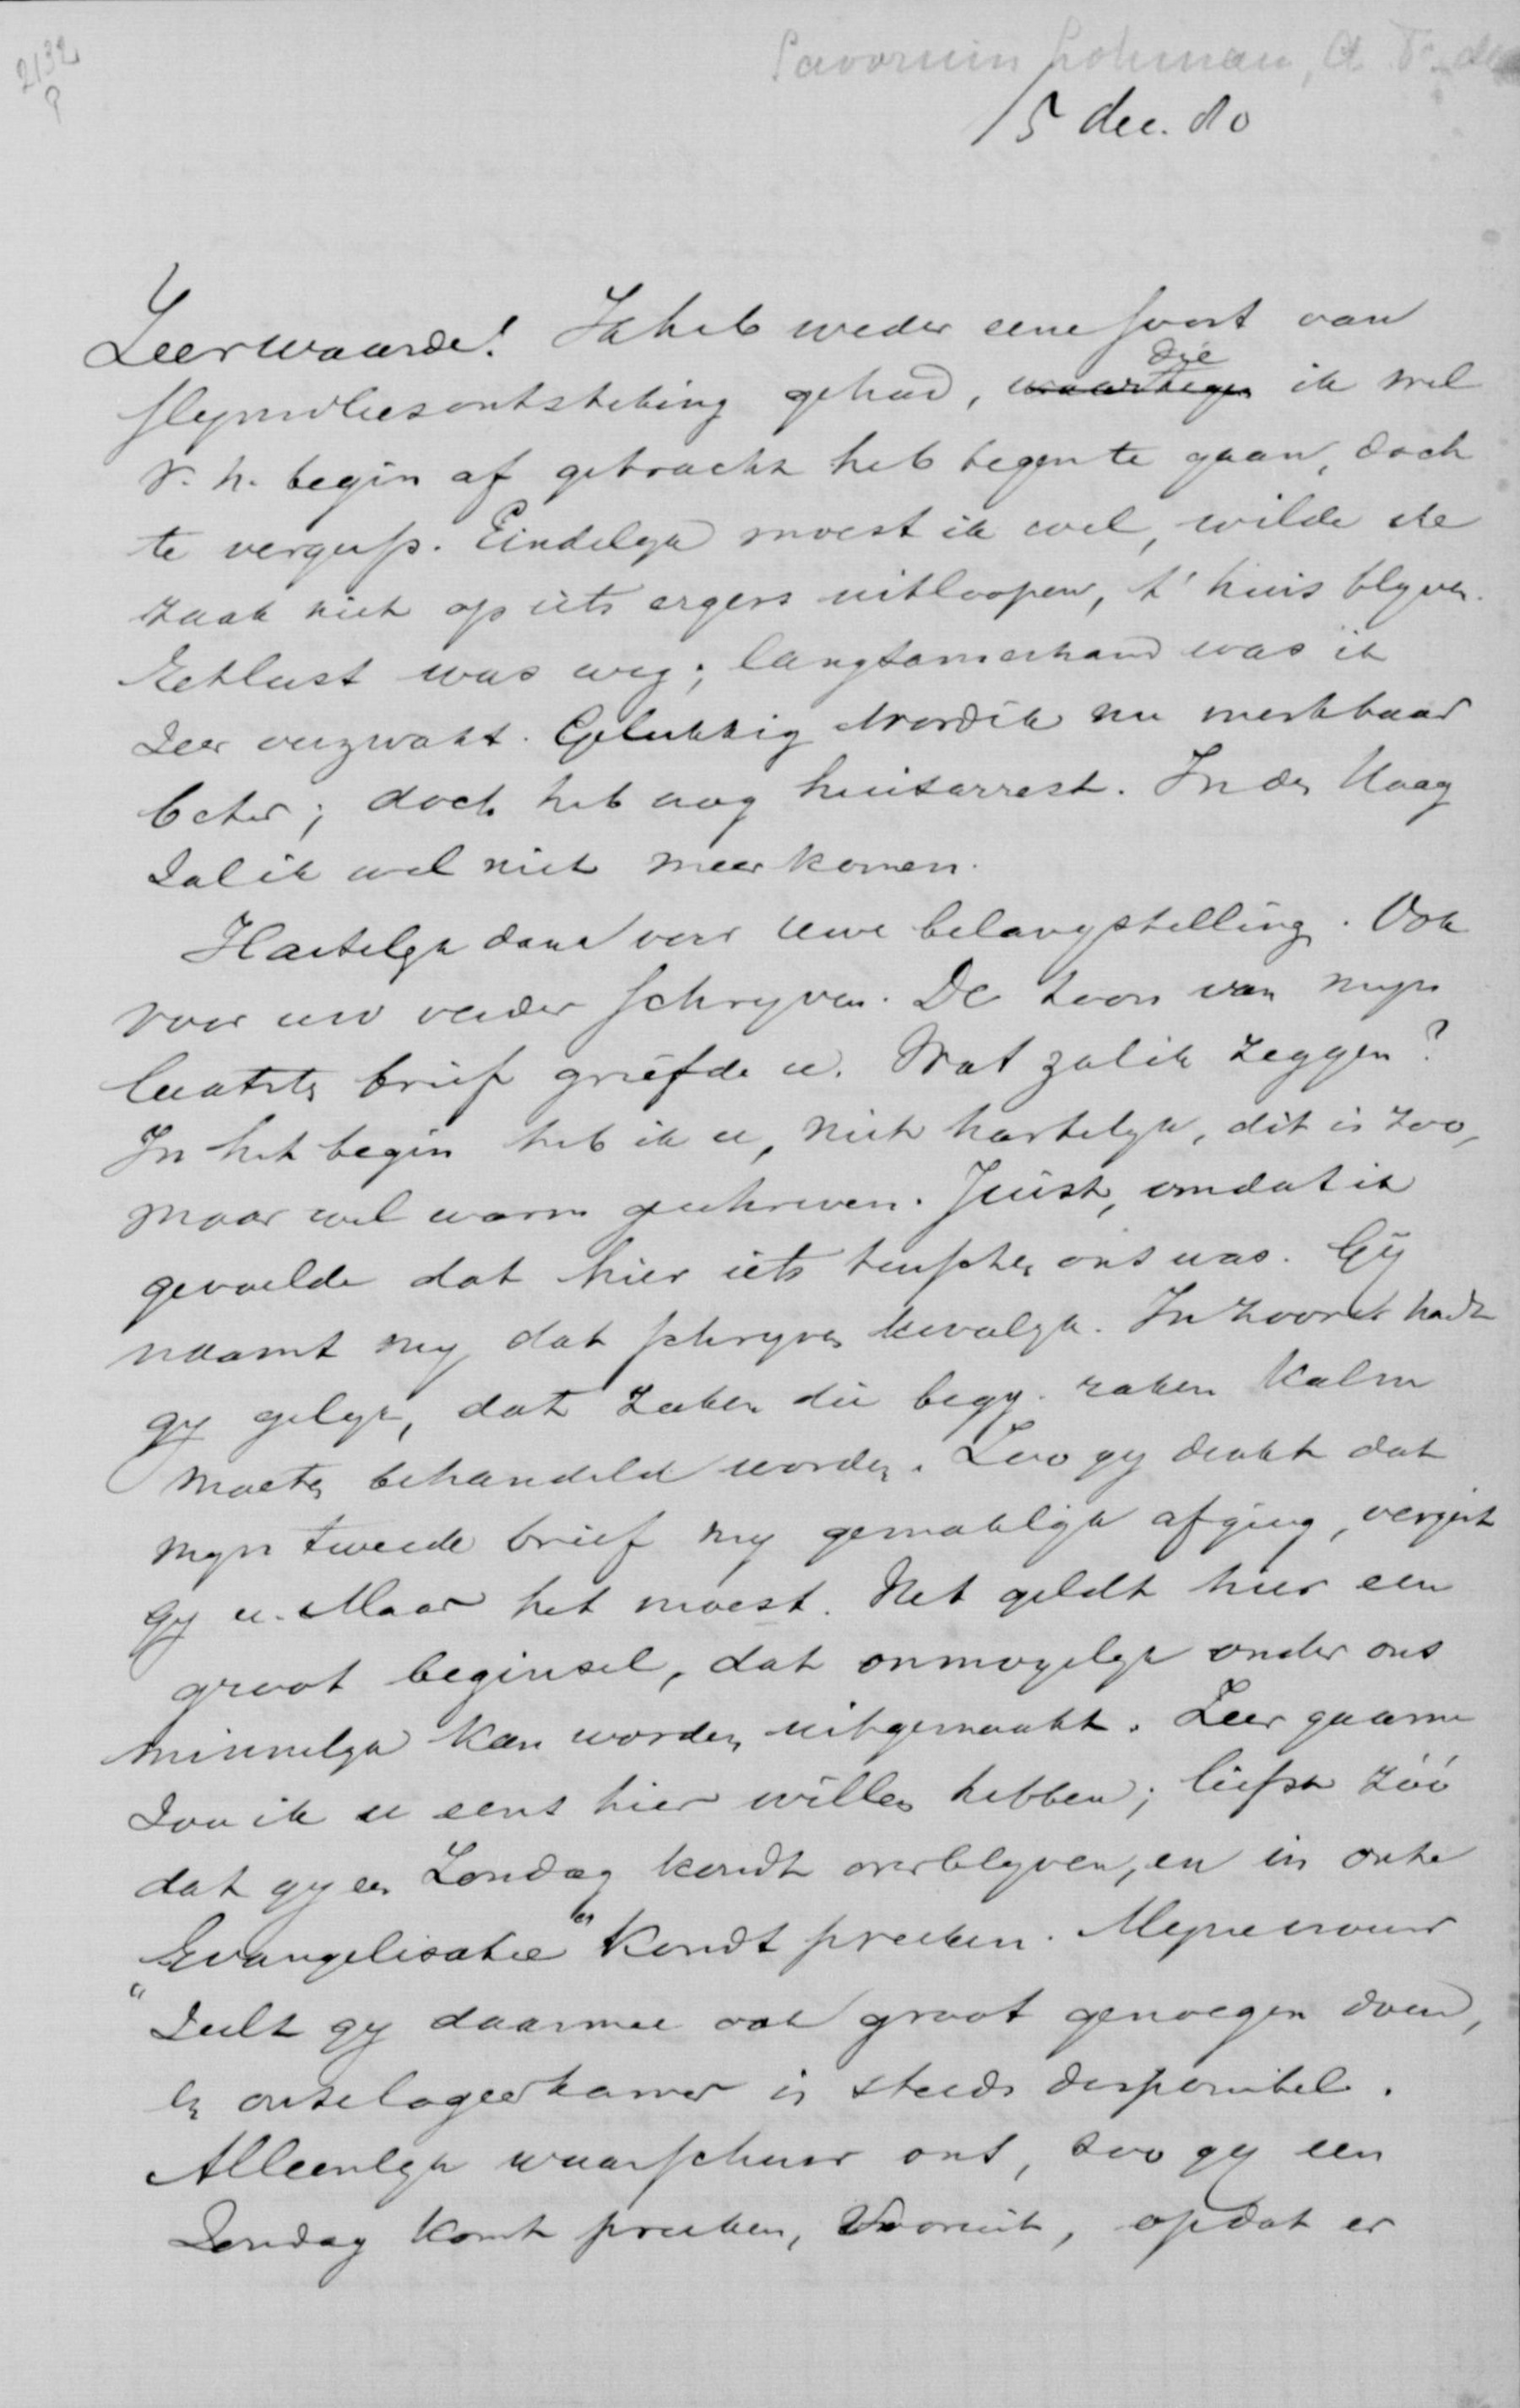 2132
Savornin Lohman, A. F. de
15 dec. 80
Zeerwaarde! Ik heb weder eene soort van
slijmvliesontsteking gehad, die ik wel
v. h. begin af getracht heb tegen te gaan, doch
te vergeefs. Eindelijk moest ik wel, wilde de
zaak niet op iets ergers uitloopen, t'huis blijven.
Eetlust was weg; langsamerhand was ik
zeer verzwakt. Gelukkig word ik nu merkbaar
beter; doch heb nog huisarrest. In den Haag
zal ik wel niet meer komen.
Hartelijk dank voor uwe belangstelling. Ook
voor uw verder schrijven. De toon van mijn
laatsten brief griefde u. Wat zal ik zeggen?
In het begin heb ik u, niet hartelijk, dit is zoo,
maar wel warm geschreven. Juist, omdat ik
gevoelde dat hier iets tusschen ons was. Gij
naamt mij dat schrijven kwalijk. In zoover hadt
gij gelijk, dat zaken die beg. raken kalm
moeten behandeld worden. Zoo gij denkt dat
mijn tweede brief mij gemakkelijk afging, vergist
gij u. Maar het moest. Het geldt hier een
groot beginsel, dat onmogelijk onder ons
minnelijk kan worden uitgemaakt. Zeer gaarne
zou ik u eens hier willen hebben; liefst zóó
dat gij een Zondag kondt overblijven, en in onze
"Evangelisatie" kondt preeken. Mijne vrouw
zult gij daarmee ook groot genoegen doen,
en onze logeerkamer is steeds disponibel.
Alleenlijk waarschuw ons, zoo gij een
Zondag komt preeken, vooruit, opdat er